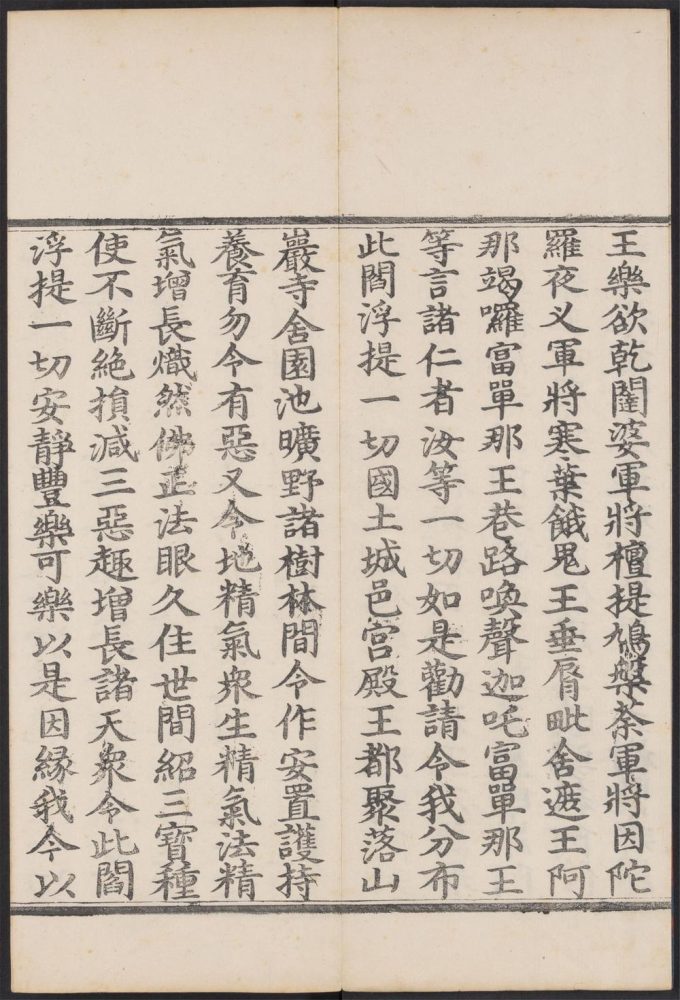 王樂欲乾闥婆軍將檀提鳩槃荼軍將因陀
羅夜义軍將寒葉餓鬼王垂脣毗舍遮王阿
那竭囉富單那王巷路喚聲迦吒富單那王
等言諸仁者汝等一切如是勸請令我分布
此閻浮提一切國土城邑宫殿王都聚落山
巖寺舍園池曠野諸樹林間令作安置護持
養育勿令有惡又令地精氣衆生精氣法精
氣增長熾然佛正法眼久住世間紹三寳種
使不斷絶損減三惡趣增長諸天衆令此閻
浮提一切安靜豐樂可樂以是因緣我今以